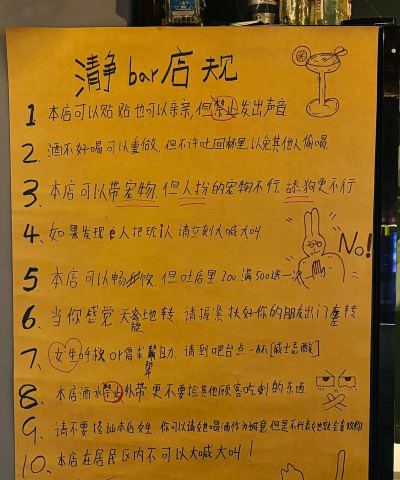 清静 bar 店规
1 本店可以贴贴也可以亲亲,但禁止发出声音
2. 酒不好喝可以重做,但不许吐回杯里,以免其他人偷喝
3. 本店可以带宠物,但人扮的宠物不行,舔狗更不行
4. 如果发现有人把玩人请立刻大喊大叫
No!
5 本店可以畅饮,但吐店里200,满500送一次
6、当你感觉天旋地转 请握紧扶好你的朋友出门蹇转
7、女生 or 需求帮助,请到吧台点一杯[威士忌酸]
8、本店酒水禁止外带,更不要捡其他顾客吃剩的东西
9、请不要搭讪本店女生,你可以请她喝酒作为诚意但是不代表她就会喜欢你
10、本店在居民区内不可以大喊大叫!